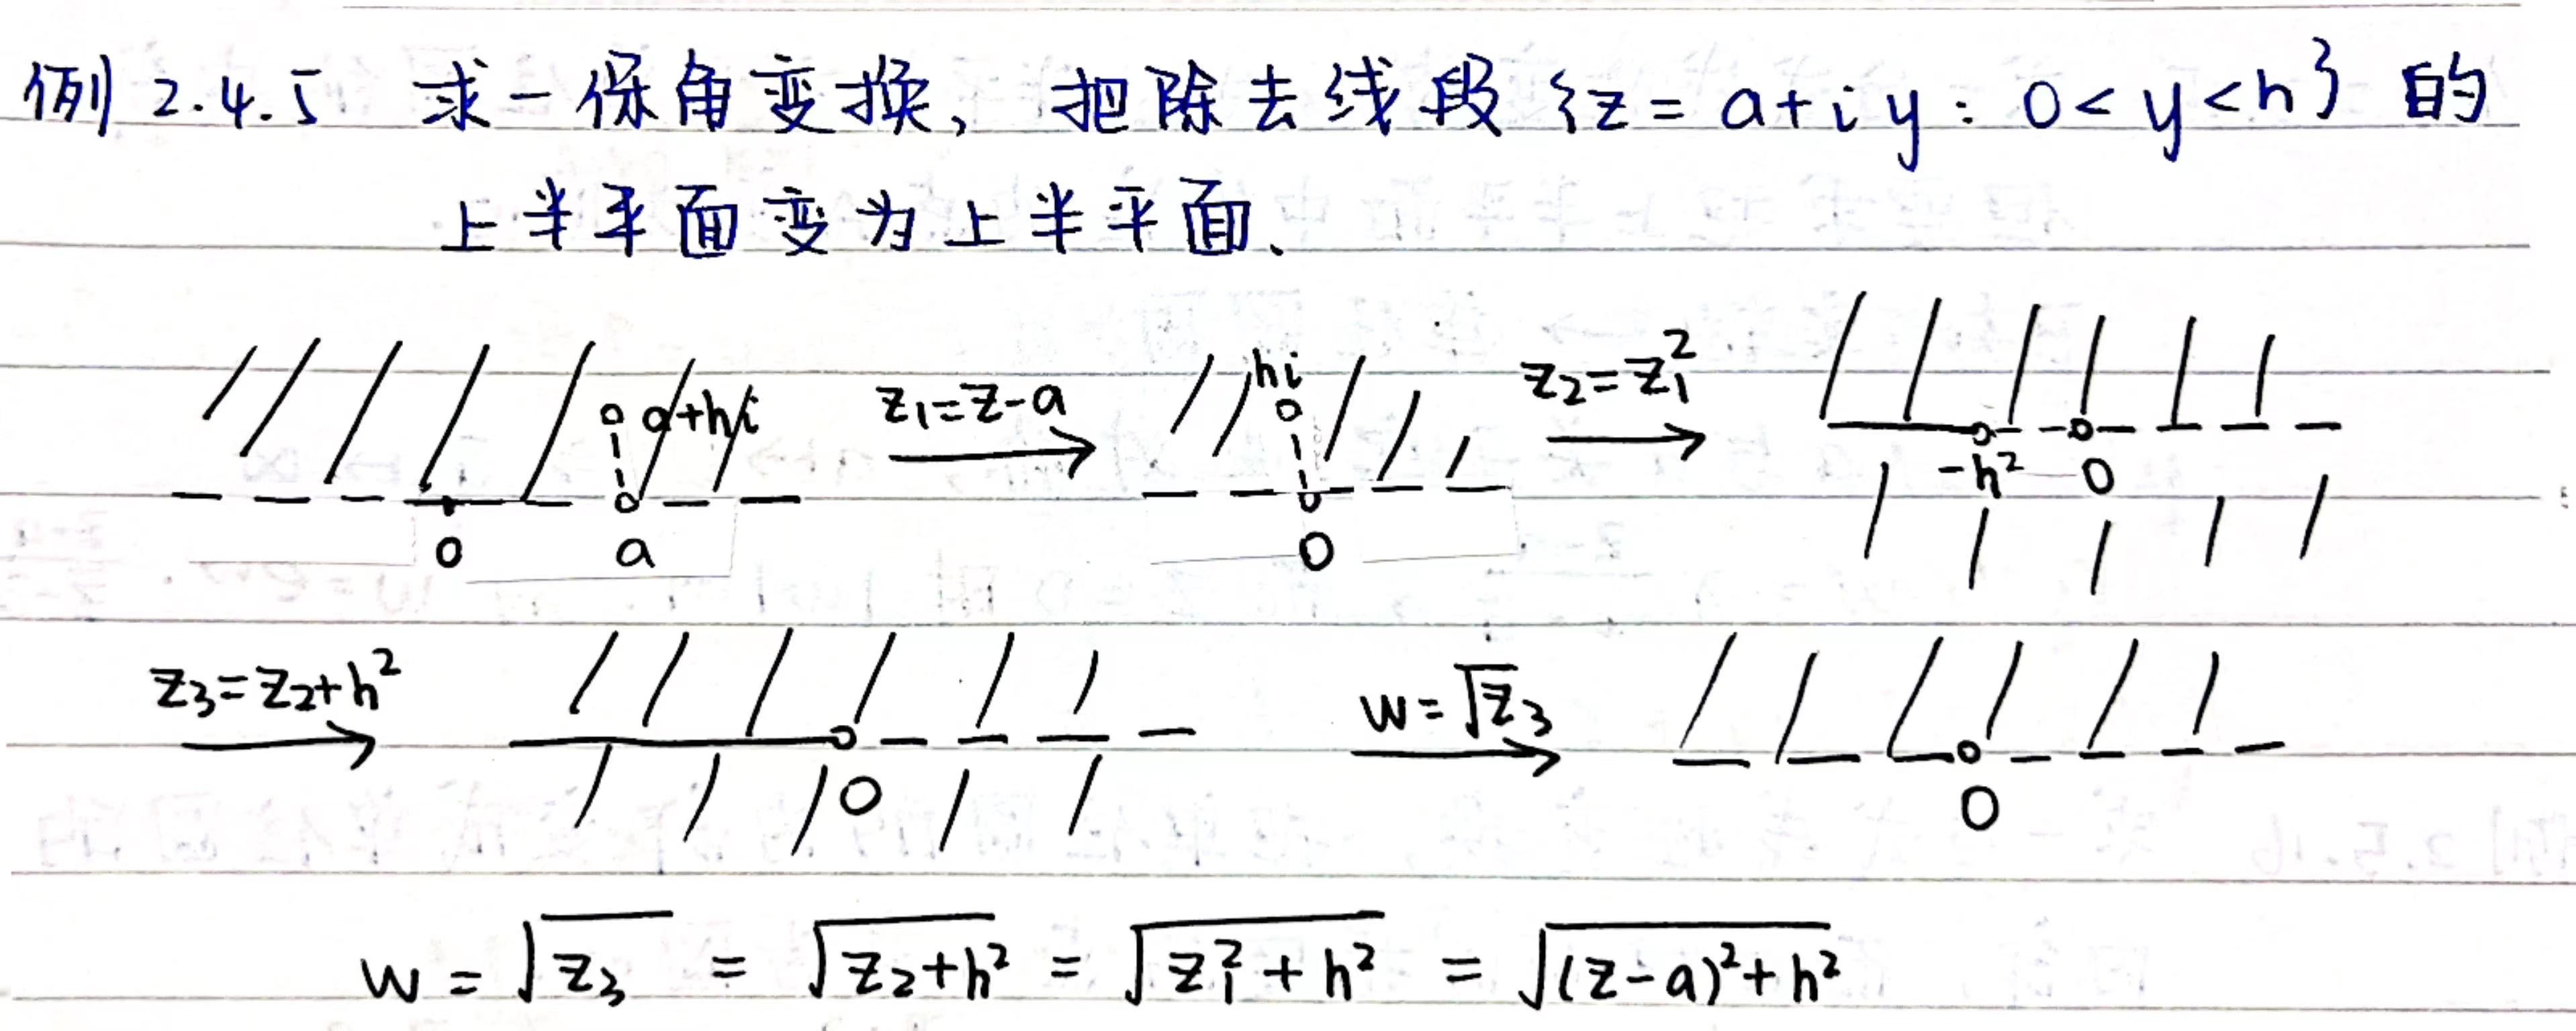 例 2.4.5 求一保角变换，把除去线段 {z = a+iy : 0<y<h} 的
上半平面变为上半平面、
0 a a+hi z₁=z-a hi 0 z₂=z₁² -h² 0
z₃=z₂+h² 0 w=√z₃ 0
w = √z₃ = √(z₂+h²) = √(z₁²+h²) = √((z-a)²+h²)